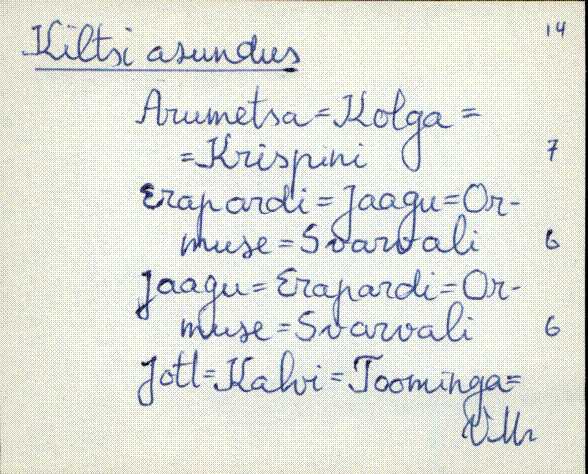 14
Kiltsi asundus
Arumetsa = Kolga =
= Krispini 7
Erapardi = Jaagu = Or-
muse = Svarvali 6
Jaagu = Erapardi = Or-
muse = Svarvali 6
Jott = Kalvi = Toominga =